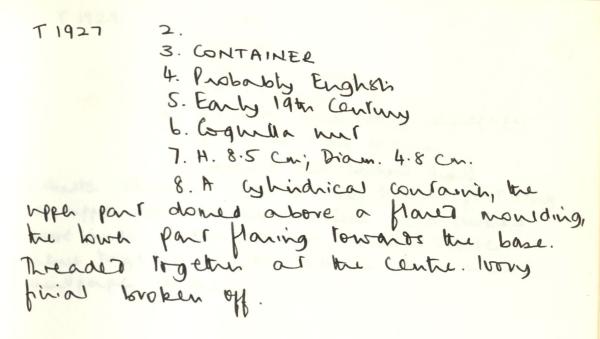 T 1927 2.
3. CONTAINER
4. Probably English
5. Early 19th Century
6. Coquilla nut
7. H. 8.5 cm; Diam. 4.8 cm.
8. A cylindrical container, the
upper part domed above a flared moulding,
the lower part flaring towards the base.
Threaded together at the centre. Ivory
finial broken off.